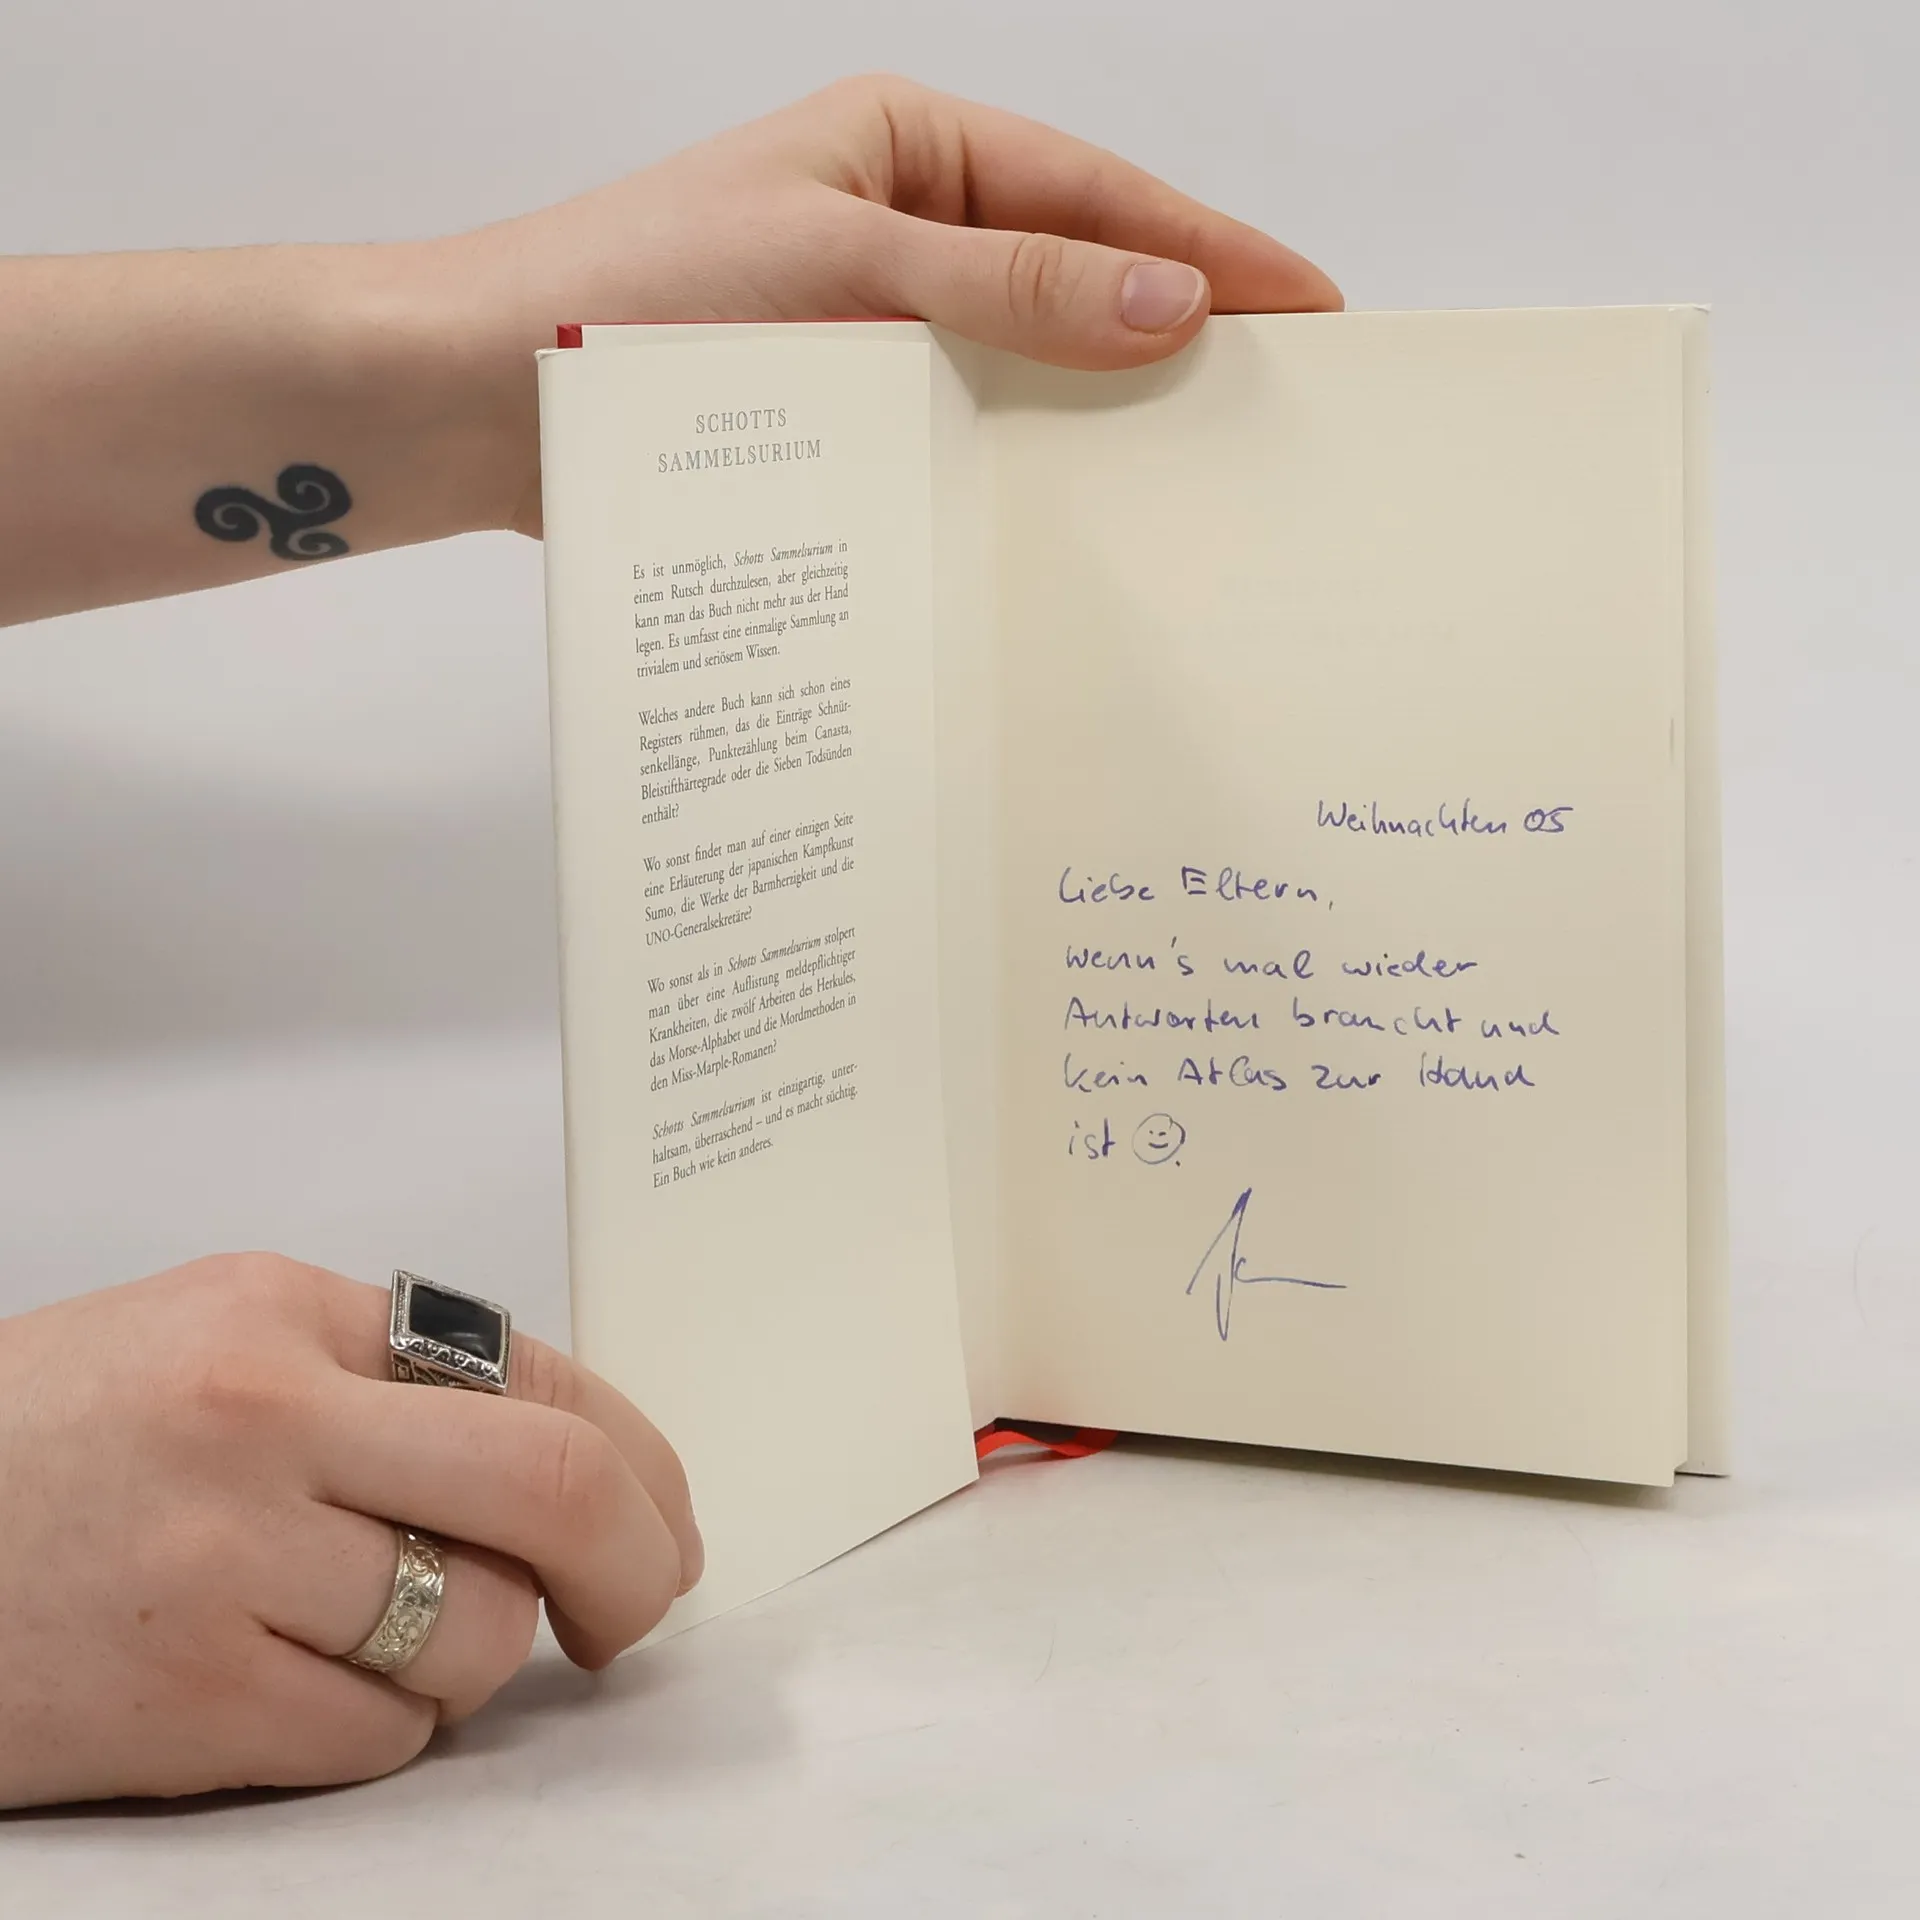 SCHOTTS
SAMMELSURIUM
Es ist unmöglich, Schotts Sammelsurium in
einem Rutsch durchzulesen, aber gleichzeitig
kann man das Buch nicht mehr aus der Hand
legen. Es umfasst eine einmalige Sammlung an
trivialem und seriösem Wissen.
Welches andere Buch kann sich schon eines
Registers rühmen, das die Einträge Schnür-
senkellänge, Punktezählung beim Canasta,
Bleistifthärtegrade oder die Sieben Todsünden
enthält?
Wo sonst findet man auf einer einzigen Seite
eine Erläuterung der japanischen Kampfkunst
Sumo, die Werke der Barmherzigkeit und die
UNO-Generalsekretäre?
Wo sonst als in Schotts Sammelsurium stolpert
man über eine Auflistung meldepflichtiger
Krankheiten, die zwölf Arbeiten des Herkules,
das Morse-Alphabet und die Mordmethoden in
den Miss-Marple-Romanen?
Schotts Sammelsurium ist einzigartig, unter-
haltsam, überraschend – und es macht süchtig.
Ein Buch wie kein anderes.
Weihnachten 05
Liebe Eltern,
wenn's mal wieder
Antworten braucht und
kein Atlas zur Hand
ist ☺.